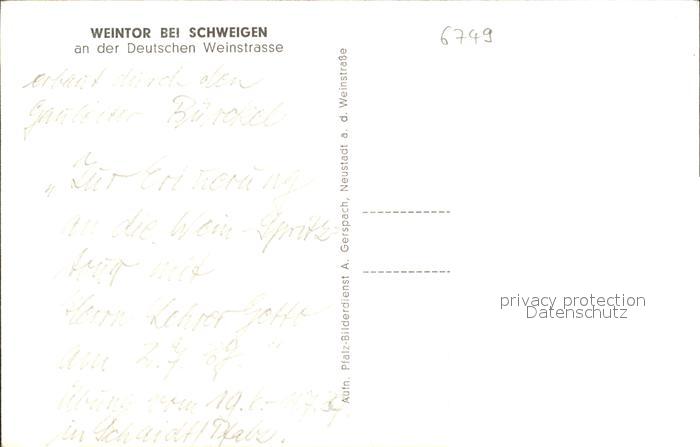 WEINTOR BEI SCHWEIGEN
an der Deutschen Weinstrasse
6749
erbaut durch den
Gauleiter Bürckel
„Zur Erinnerung
an die Wein-Spritz-
mit
Herrn Lehrer
am 2.7.
Übung vom 19.6.-
in Schaidt/Pfalz.
Aufn. Pfalz-Bilderdienst A. Gerspach, Neustadt a. d. Weinstraße
privacy protection
Datenschutz